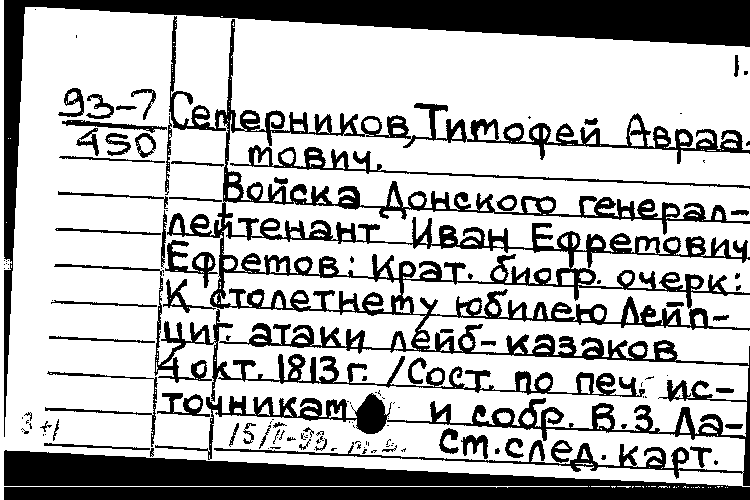 1.
93-7 Сетерников, Тимофей Авраа-
450 тович.
Войска Донского генерал-
лейтенант Иван Ефретович
Ефретов: Крат. биогр. очерк:
К столетнему юбилею Лейп-
циг. атаки лейб-казаков
4 окт. 1813 г. /Сост. по печ. ис-
точникам и собр. В.З. Ла-
3+1 15/II-93. т.в. ст. след. карт.